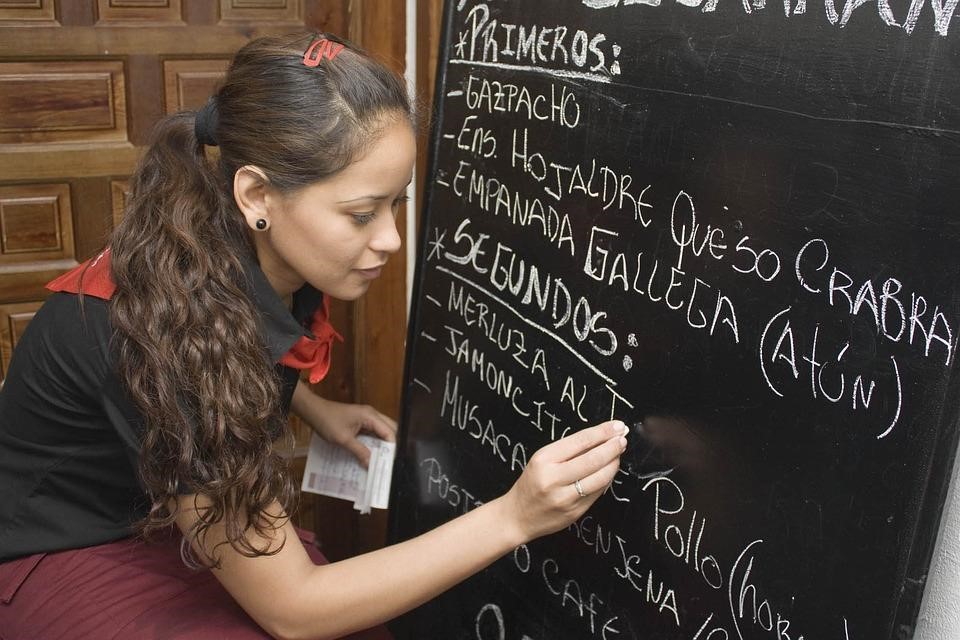 *PRIMEROS:
-GAZPACHO
-Ens. HOJALDRE QueSO CRABRA
-EMPANADA GALLEGA (Atún)
*SEGUNDOS:
-MERLUZA AL T
-JAMONCIT E Pollo (hor
-MUSACA RENJENA
POST O CAFE